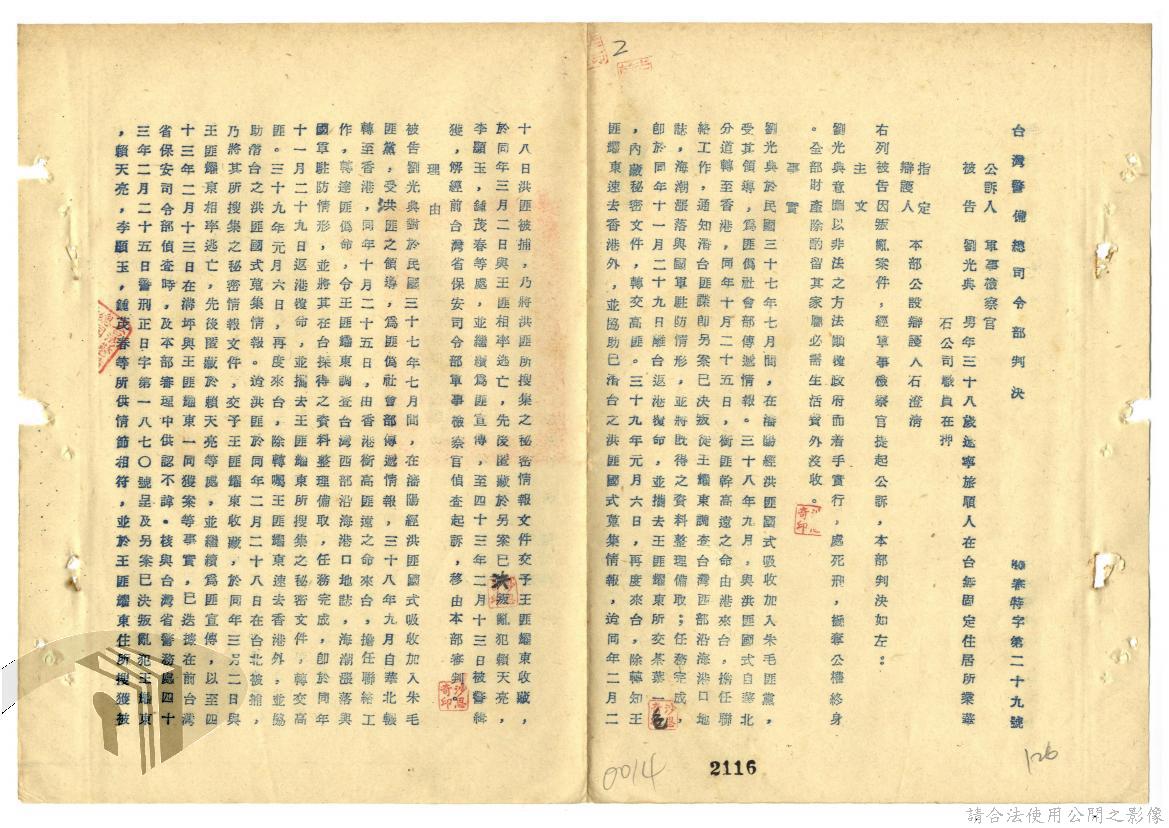 台灣警備總司令部判決
審特字第二十九號
公訴人 軍事檢察官
被告 劉光典 男年三十八歲遼寧旅順人在台無固定住居所業華
石公司職員在押
指定
辯護人 本部公設辯護人石澄清
右列被告因叛亂案件,經軍事檢察官提起公訴,本部判決如左:
主文
劉光典意圖以非法之方法顛覆政府而着手實行,處死刑,褫奪公權終身
。全部財產除酌留其家屬必需生活費外沒收。
事實
劉光典於民國三十七年七月間,在瀋陽經洪匪國式吸收加入朱毛匪黨,
受其領導,爲匪僞社會部傳遞情報。三十八年九月,與洪匪國式自華北
分道轉至香港,同年十月二十五日,銜匪幹高遠之命由港來台,擔任聯
絡工作,通知潛台匪諜即另案已決叛徒王耀東調查台灣西部沿海港口地
誌,海潮漲落與國軍駐防情形,並將既得之資料整理備取;任務完成,
即於同年十一月二十九日離台返港復命,並攜去王匪耀東所交茶葉一包
,內藏秘密文件,轉交高匪。三十九年元月六日,再度來台,除轉知王
匪耀東速去香港外,並協助已潛台之洪匪國式蒐集情報,迨同年二月二
十八日洪匪被捕,乃將洪匪所搜集之秘密情報文件交予王匪耀東收藏,
於同年三月二日與王匪相率逃亡,先後匿藏於另案已決叛亂犯賴天亮,
李顯玉,鍾茂春等處,並繼續爲匪宣傳,至四十三年二月十三日被警緝
獲,解經前台灣省保安司令部軍事檢察官偵查起訴,移由本部審判。
理由
被告劉光典對於民國三十七年七月間,在瀋陽經洪匪國式吸收加入朱毛
匪黨,受洪匪之領導,爲匪僞社會部傳遞情報,三十八年九月自華北輾
轉至香港,同年十月二十五日,由香港銜高匪遠之命來台,擔任聯絡工
作,轉達匪僞命,令王匪耀東調查台灣西部沿海港口地誌,海潮漲落與
國軍駐防情形,並將其在台採得之資料整理備取,任務完成,即於同年
十一月二十九日返港復命,並攜去王匪耀東所搜集之秘密文件,轉交高
匪。三十九年元月六日,再度來台,除轉囑王匪耀東速去香港外,並協
助潛台之洪匪國式蒐集情報。迨洪匪於同年二月二十八日在台北被捕,
乃將其所搜集之秘密情報文件,交予王匪耀東收藏,於同年三月二日與
王匪耀東相率逃亡,先後匿藏於賴天亮等處,並繼續爲匪宣傳,以至四
十三年二月十三日在潭坪與王匪耀東一同獲案等事實,已迭據在前台灣
省保安司令部偵查時,及本部審理中供認不諱。核與台灣省警務處四十
三年二月二十五日警刑正日字第一八七〇號呈及另案已決叛亂犯王耀東
,賴天亮,李顯玉,鍾茂春等所供情節相符,並於王匪耀東住所獲被
2
126
0014
2116
請合法使用公開之影像